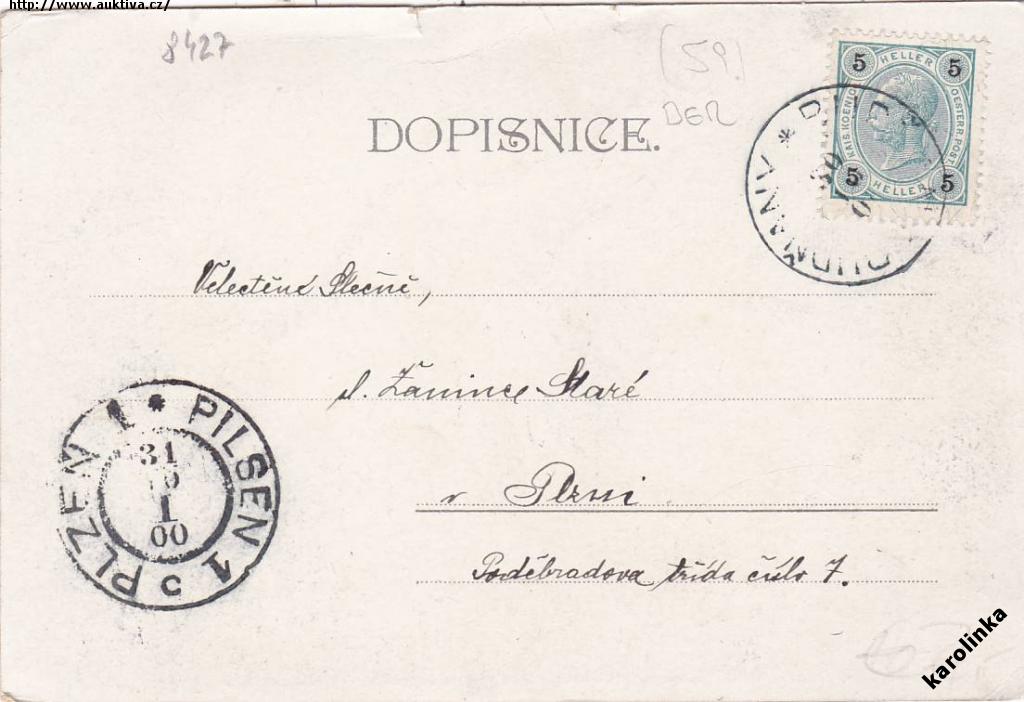 http://www.auktiva.cz/
8427
(59)
BER
DOPISNICE.
5 HELLER 5
KAIS. KOENIG. OESTERR. POST.
5 HELLER 5
Velectěná Slečně,
sl. Žanince Staré
v Plzni
Poděbradova třída číslo 7.
PLZEŇ 1 * PILSEN 1
31
1
00
karolinka